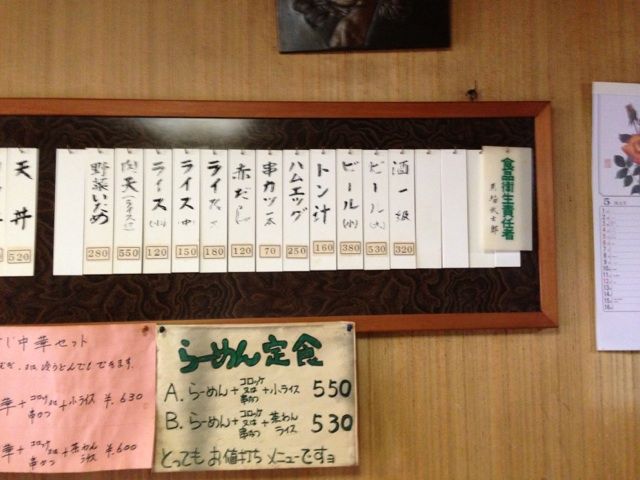 天丼
520
野菜いため
280
肉天(ライス付)
550
ライス(小)
120
ライス(中)
150
ライス(大)
180
赤だし
120
串カツ一本
70
ハムエッグ
250
トン汁
160
ビール(小)
380
ビール(大)
530
酒一級
320
食品衛生責任者
5
じ中華セット
又は冷うどんでもできます。
華+コロッケ又は串かつ+小ライス ¥.630
華+コロッケ又は串かつ+茶わんライス ¥.600
らーめん定食
A. らーめん+コロッケ又は串かつ+小ライス 550
B. らーめん+コロッケ又は串かつ+茶わんライス 530
とってもお値打ちメニューですョ